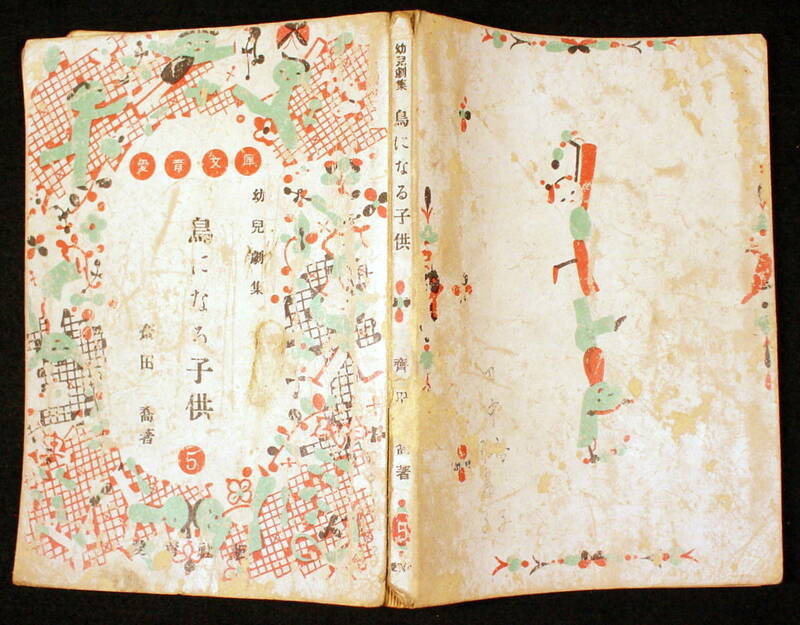 愛育文庫
幼兒劇集
鳥になる子供
齋田 喬著
5
幼兒劇集 鳥になる子供
喬著
5